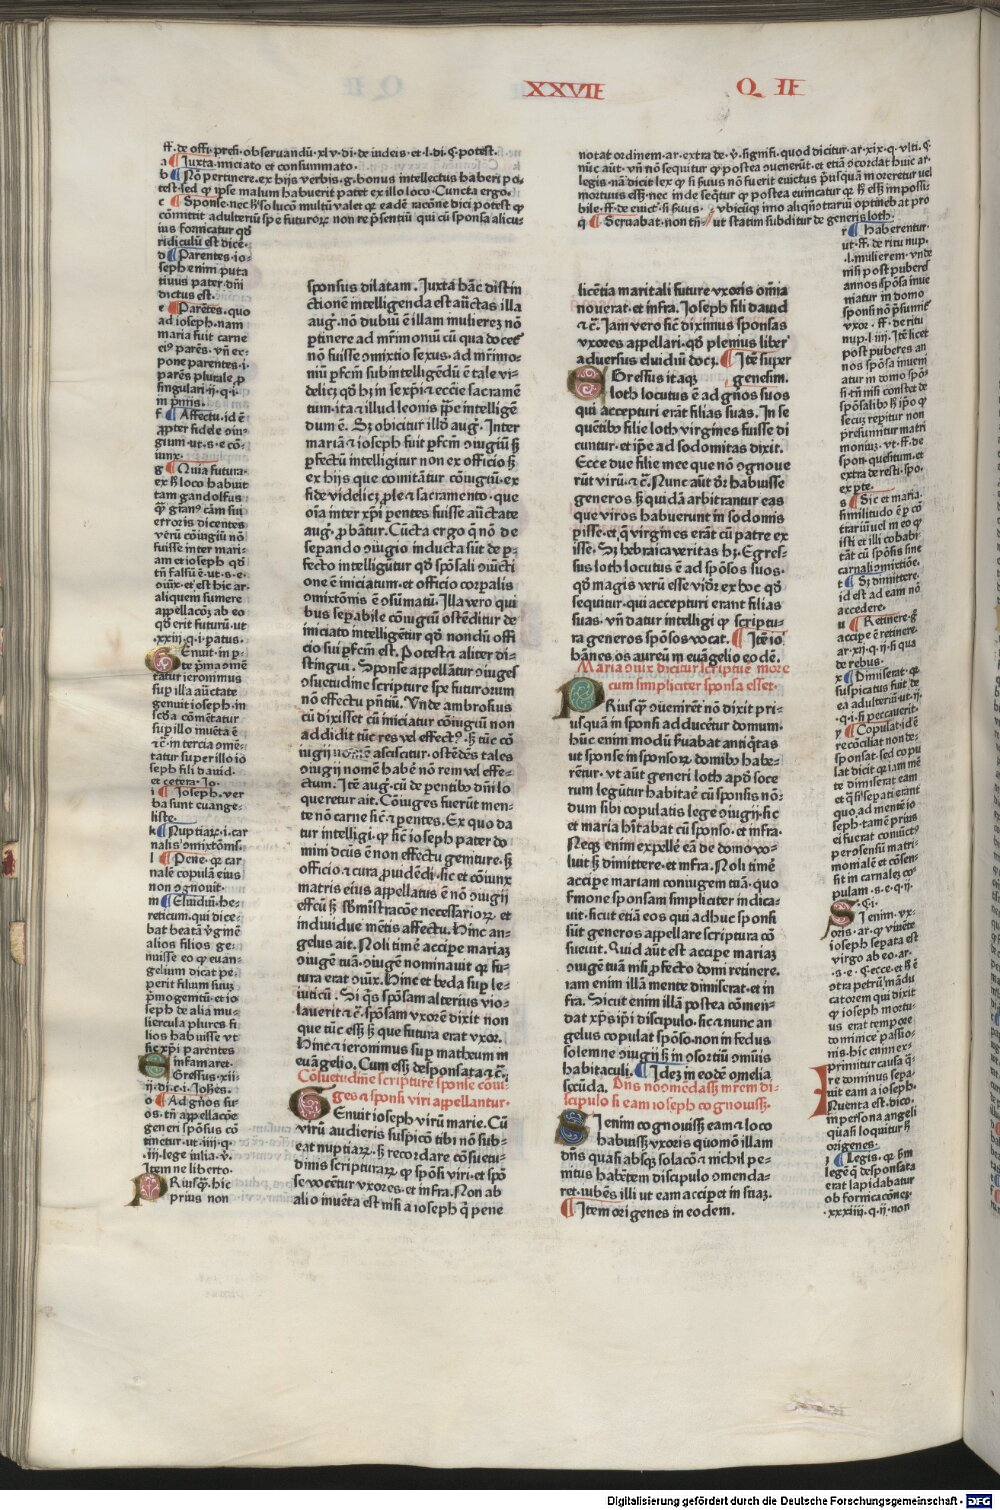 XXVII Q II
ff. de offi. presi. obseruandū xlv. di. de iudeis. et l. di. q̄. potest.
a ¶ Iuxta. iniciato et consummato.
b ¶ Nō pertinere. ex hijs verbis. g. bonus intellectus haberi po
test. sed qp̄ ipse malum habuerit patet ex illo loco. Cuncta ergo.
c ¶ Sponse. nec h̄ solucō multū valet qr eadē racōne dici potest qp̄
cōmittit adulteriū spe futuroꝝ non rep̄sentiū qui cū sponsa alicu
ius fornicatur qd̄
ridiculū est dicē.
d ¶ Parentes. io-
seph enim puta
tiuus pater dn̄i
dictus est.
e ¶ Parētes. quo
ad ioseph. nam
maria fuit carne
pone parentes. i.
parēs plurale p̱
singulari. ij. q. i.
in primis.
f ¶ Affectu. id ē
p̱pter fidele ɔiu-
gium. ut. s. e. cō-
iunx.
g ¶ Quia futura.
ex h̄ loco habuit
tam gandolfus
erroris dicentes
verū cōiugiū nō
fuisse inter mari-
am et ioseph qd̄
aliquem sumere
appellacōꝫ ab eo
qd̄ erit futurū. ut
.xxiij. q. i. ꝑatus.
Genuit. in ꝑ-
te p̄ma ɔmē
tatur ieronimus
sup̱ illa auctate
genuit ioseph. in
scd̄a cōmētatur
sup̱ illo inuēta ē
⁊c̄. in tercia ɔmē-
tatur sup̱er illo io
seph fili dauid.
et cetera. Jo.
i ¶ Ioseph. ver
ba sunt euange-
liste.
k ¶ Nuptiaꝝ. i. car
nalis ɔmixtōnis.
l ¶ Pene. qr car
nalē copulā eius
non ɔgnouit.
m ¶ Eluidiū. he-
reticum. qui dice-
bat beatā v̄ginē
alios filios ge-
nuisse eo qp̄ euan-
gelium dicat pe-
perit filium suuꝫ
p̄mogenitū. et io-
seph de alia mu-
liercula plures fi
lios habuisse vt
sic xp̄i parentes
infamaret.
Egressus. xii-
ij. di. c. i. Johēs.
o ¶ Ad gn̄os su-
os. tn̄ appellacōe
generi sponsus cō
tinetur. ut. iiij. q.
.iij. lege iulia. v̄.
Item ne liberto.
Priusqp̄. hic
prius non
sponsus dilatam. Iuxta hāc distin
ctionē intelligenda est auctas illa
aug̱. nō dubiū ē illam mulierez nō
ꝑtinere ad mr̄imoniū cū qua docet
nō fuisse ɔmixtio sexus. ad mr̄imo-
niū ꝑfcm̄ subintelligēdū ē tale vi-
delicꝫ qd̄ hꝫ in se xp̄i ⁊ eccīe sacramē
tum. ita ⁊ illud leonis p̄pe intelligē
dum ē. Sꝫ obicitur illd̄ aug̱. Inter
mariā ⁊ ioseph fuit ꝑfcm̄ ɔiugiū. ẖ
ꝑfectū intelligitur non ex officio ẖ
ex hijs que comitātur cōiugiū. ex
fide videlicꝫ ꝓle ⁊ sacramento. que
oīa inter xp̄i ꝑentes fuisse auctate
aug̱. ꝓbātur. Cūcta ergo q̄ nō de
seꝑando ɔiugio inducta sūt de ꝑ-
fecto intelligūtur qd̄ spōsali ɔuēti
one ē iniciatum. et officio corꝑalis
ɔmixtōnis ē ɔsūmatū. Illa vero qui
bus seꝑabile cōiugiū ostēditur de
iniciato intelligētur qd̄ nondū offi
cio sui ꝑfcm̄ est. Potest ⁊ aliter di-
stingui. Sponse appellātur ɔiuges
ɔsuetudine scripture spe futurorum
nō effectu p̄ntiū. Vnde ambrosius
cū dixisset cū iniciatur cōiugiū non
addidit tūc res vel effectꝰ. ẖ tūc cō
iugij nomē asciscitur. ostēdēs tales
ɔiugij nomē habē nō rem vel effe-
ctum. Itē aug̱. cū de ꝑentibꝰ dn̄i lo
queretur ait. Cōiuges fuerūt men-
te nō carne sic̄ ⁊ ꝑentes. Ex quo da
tur intelligi. qp̄ sic̄ ioseph pater do
mini dcūs ē non effectu geniture. ẖ
officio ⁊ cura ꝓuidēdi. sic et cōiunx
matris eius appellatus ē nō ɔiugij
effcū ẖ sb̄mīstracōe necessarioꝝ et
indiuidue mētis affectu. Hinc an-
gelus ait. Noli timē accipe mariaꝫ
ɔiugē tuā. ɔiugē nominauit qr fu-
tura erat ɔiūx. Hinc et beda sup̱ le-
uiticū. Si q̄s spōsam alterius vio-
lauerit ⁊c̄. spōsam vxorē dixit non
que tūc essꝫ ẖ que futura erat vxor.
Hinc ⁊ ieronimus sup̱ matheum in
euāgelio. Cum essꝫ desponsata ⁊c̄.
Cōsuetudine scripture sponse coniu-
ges ⁊ sponsi viri appellantur.
Genuit ioseph virū marie. Cū
virū audieris suspicō tibi nō sub-
eat nuptiaꝝ. ẖ recordare cōsuetu-
dinis scripturaꝝ qp̄ spōsi viri. et spō
se vocētur vxores. et infra. Non ab
alio inuēta est nisi a ioseph q̄ pene
notat ordinem. ar. extra de. v̄. signifi. quod dicitur. ar. xix. q. vlti. q̄.
nūc aūt. vn̄ nō sequitur qp̄ postea ɔuenerūt. et etiā ɔcordat huic ar.
legis. nā dicit lex qp̄ si ẜuus nō fuerit euictus p̄usquā moreretur vel
mortuus essꝫ. nec inde seq̄tur qp̄ postea euincatur qr h̄ essꝫ impossi-
bile. ff. de euict. si ẜuus. vbicūqꝫ imo aliqn̄ otrariū optineb at pro
q ¶ Seruabat. non tn̄ ut statim subditur de generis loth.
licētia maritali future vxoris om̄ia
nouerat. et infra. Joseph fili dauid
⁊ c̄. Iam vero sic̄ diximus sponsas
vxores appellari. qd̄ plenius liber
aduersus eluidiū docꝫ. ¶ Itē super
Egressus itaqꝫ genesim.
loth locutus ē ad gn̄os suos
qui accepturi erāt filias suas. In se
quētibꝰ filie loth virgines fuisse di
cuntur. et ip̄e ad sodomitas dixit.
Ecce due filie mee que nō ɔgnoue
rūt virū. ⁊ c̄. Nunc aūt dr̄ habuisse
generos ẖ quidā arbitrantur eas
que viros habuerunt in sodomis
ꝑisse. et q̄ virgines erāt cū patre ex
isse. Sꝫ hebraica veritas hꝫ. Egres-
sus loth locutus ē ad spōsos suos.
qd̄ magis verū esse vide̅r ex hoc qd̄
sequitur. qui accepturi erant filias
suas. vn̄ datur intelligi qp̄ scriptu-
ra generos spōsos vocat. ¶ Itē io-
hānes. os aureū in euāgelio eodē.
Maria ɔiux dicitur scripture more
cum simpliciter sponsa esset.
Priusqp̄ ɔueniret nō dixit pri-
usquā in sponsi adducetur domum.
hūc enim modū ẜuabat antiq̄tas
ut sponse in sponsoꝝ domibꝰ habe-
rētur. vt aūt generi loth apd̄ soce
rum legūtur habitāē cū sponsis nō-
dum sibi copulatis lege ɔiugij. sic
et maria h̄itabat cū sponso. et infra.
Neqꝫ enim expellē eā de domo vo-
luit ẖ dimittere. et infra. Noli timē
accipe mariam coniugem tuā. quo
ẜmone sponsam simpliciter indica-
uit. sicut etiā eos qui adhuc sponsi
sūt generos appellare scriptura cō
sueuit. Quid aūt est accipe mariaꝫ
ɔiugē tuā nisi ꝓfecto domi retinere.
iam enim illā mente dimiserat. et in
fra. Sicut enim illā postea cōmen-
dat xp̄s ip̄i discipulo. sic ⁊ nunc an
gelus copulat spōso. non in fedus
solemne ɔiugij ẖ in ɔsortiū ɔmūis
habitaculi. ¶ Idez in eodē omelia
secūda. Dn̄s nō ɔmēdassꝫ mr̄em di-
scipulo si eam ioseph cognouissꝫ.
Si enim cognouissꝫ eam ⁊ loco
habuissꝫ vxoris quomō illam
dn̄s quasi absqꝫ solacō ⁊ nichil pe-
nitus habētem discipulo ɔmenda-
ret. iubēs illi ut eam acciꝑet in suaꝫ.
¶ Item origenes in eodem.
r ¶ Haberentur
ut. ff. de ritu nup.
.l. mulierem. vnde
nisi post puberd
annos spōsa inue
niatur in domo
sponsi nō p̄sumit̄
vxor. ff. de ritu
nup. l. iiij. Itē licet
post puberes an
nos spōsa inueni
atur in domo spō-
si. tn̄ nisi constet de
spōsalibꝰ ẖ ip̄o qp̄
secuꝫ reꝑitur non
p̄resumitur matri
moniuꝫ. vt. ff. de
spon. quesitum. et
extra de resti. spo.
ex ꝑte.
s ¶ Sic et maria.
similitudo ē ꝑ cō
trariū uel in eo qp̄
isti et illi cohabi-
tāt cū spōsis sine
carnali ɔmixtiōe.
t ¶ Sꝫ dimittere.
id est ad eam nō
accedere.
u ¶ Retinere. g̱
accipe ē retinere.
ar. xij. q. ij. si qua
de rebus.
x ¶ Dimiserat. qr
suspicatus fuit de
ea adulteriū. ut. ij
.q. i. si peccauerit.
y ¶ Copulat. id ē
reconciliat non de-
sponsat. sed copu
lat dicit qr iam mē
te dimiserat eam
quo ad mente io-
seph. tamē prius
ei fuerat coniūctꝰ
ꝑ osensū matri-
moniale et cōsen-
sit in carnaleꝫ co-
pulam. s. e. q. ij.
S. q. i.
Si enim. vx-
oris. ar. qp̄ viuēte
ioseph seꝑata est
virgo ab eo. ar.
.s. e. q̄. ecce. et h̄ ē
ɔtra petrū māndu
catorem qui dixit
qp̄ ioseph mortu-
us erat tempore
dominice passio-
nis. hic enim ex-
primitur causa q̄-
re dominus sepa-
uit eam a ioseph.
Inuenta est. dico.
in persona angeli
quasi loquitur ẖ
origenes.
z ¶ Legis. qr ẜm
legē q̄ desponsata
erat lapidabatur
ob fornicacōneꝫ.
.xxxiiij. q. ij. non
Digitalisierung gefördert durch die Deutsche Forschungsgemeinschaft - DFG